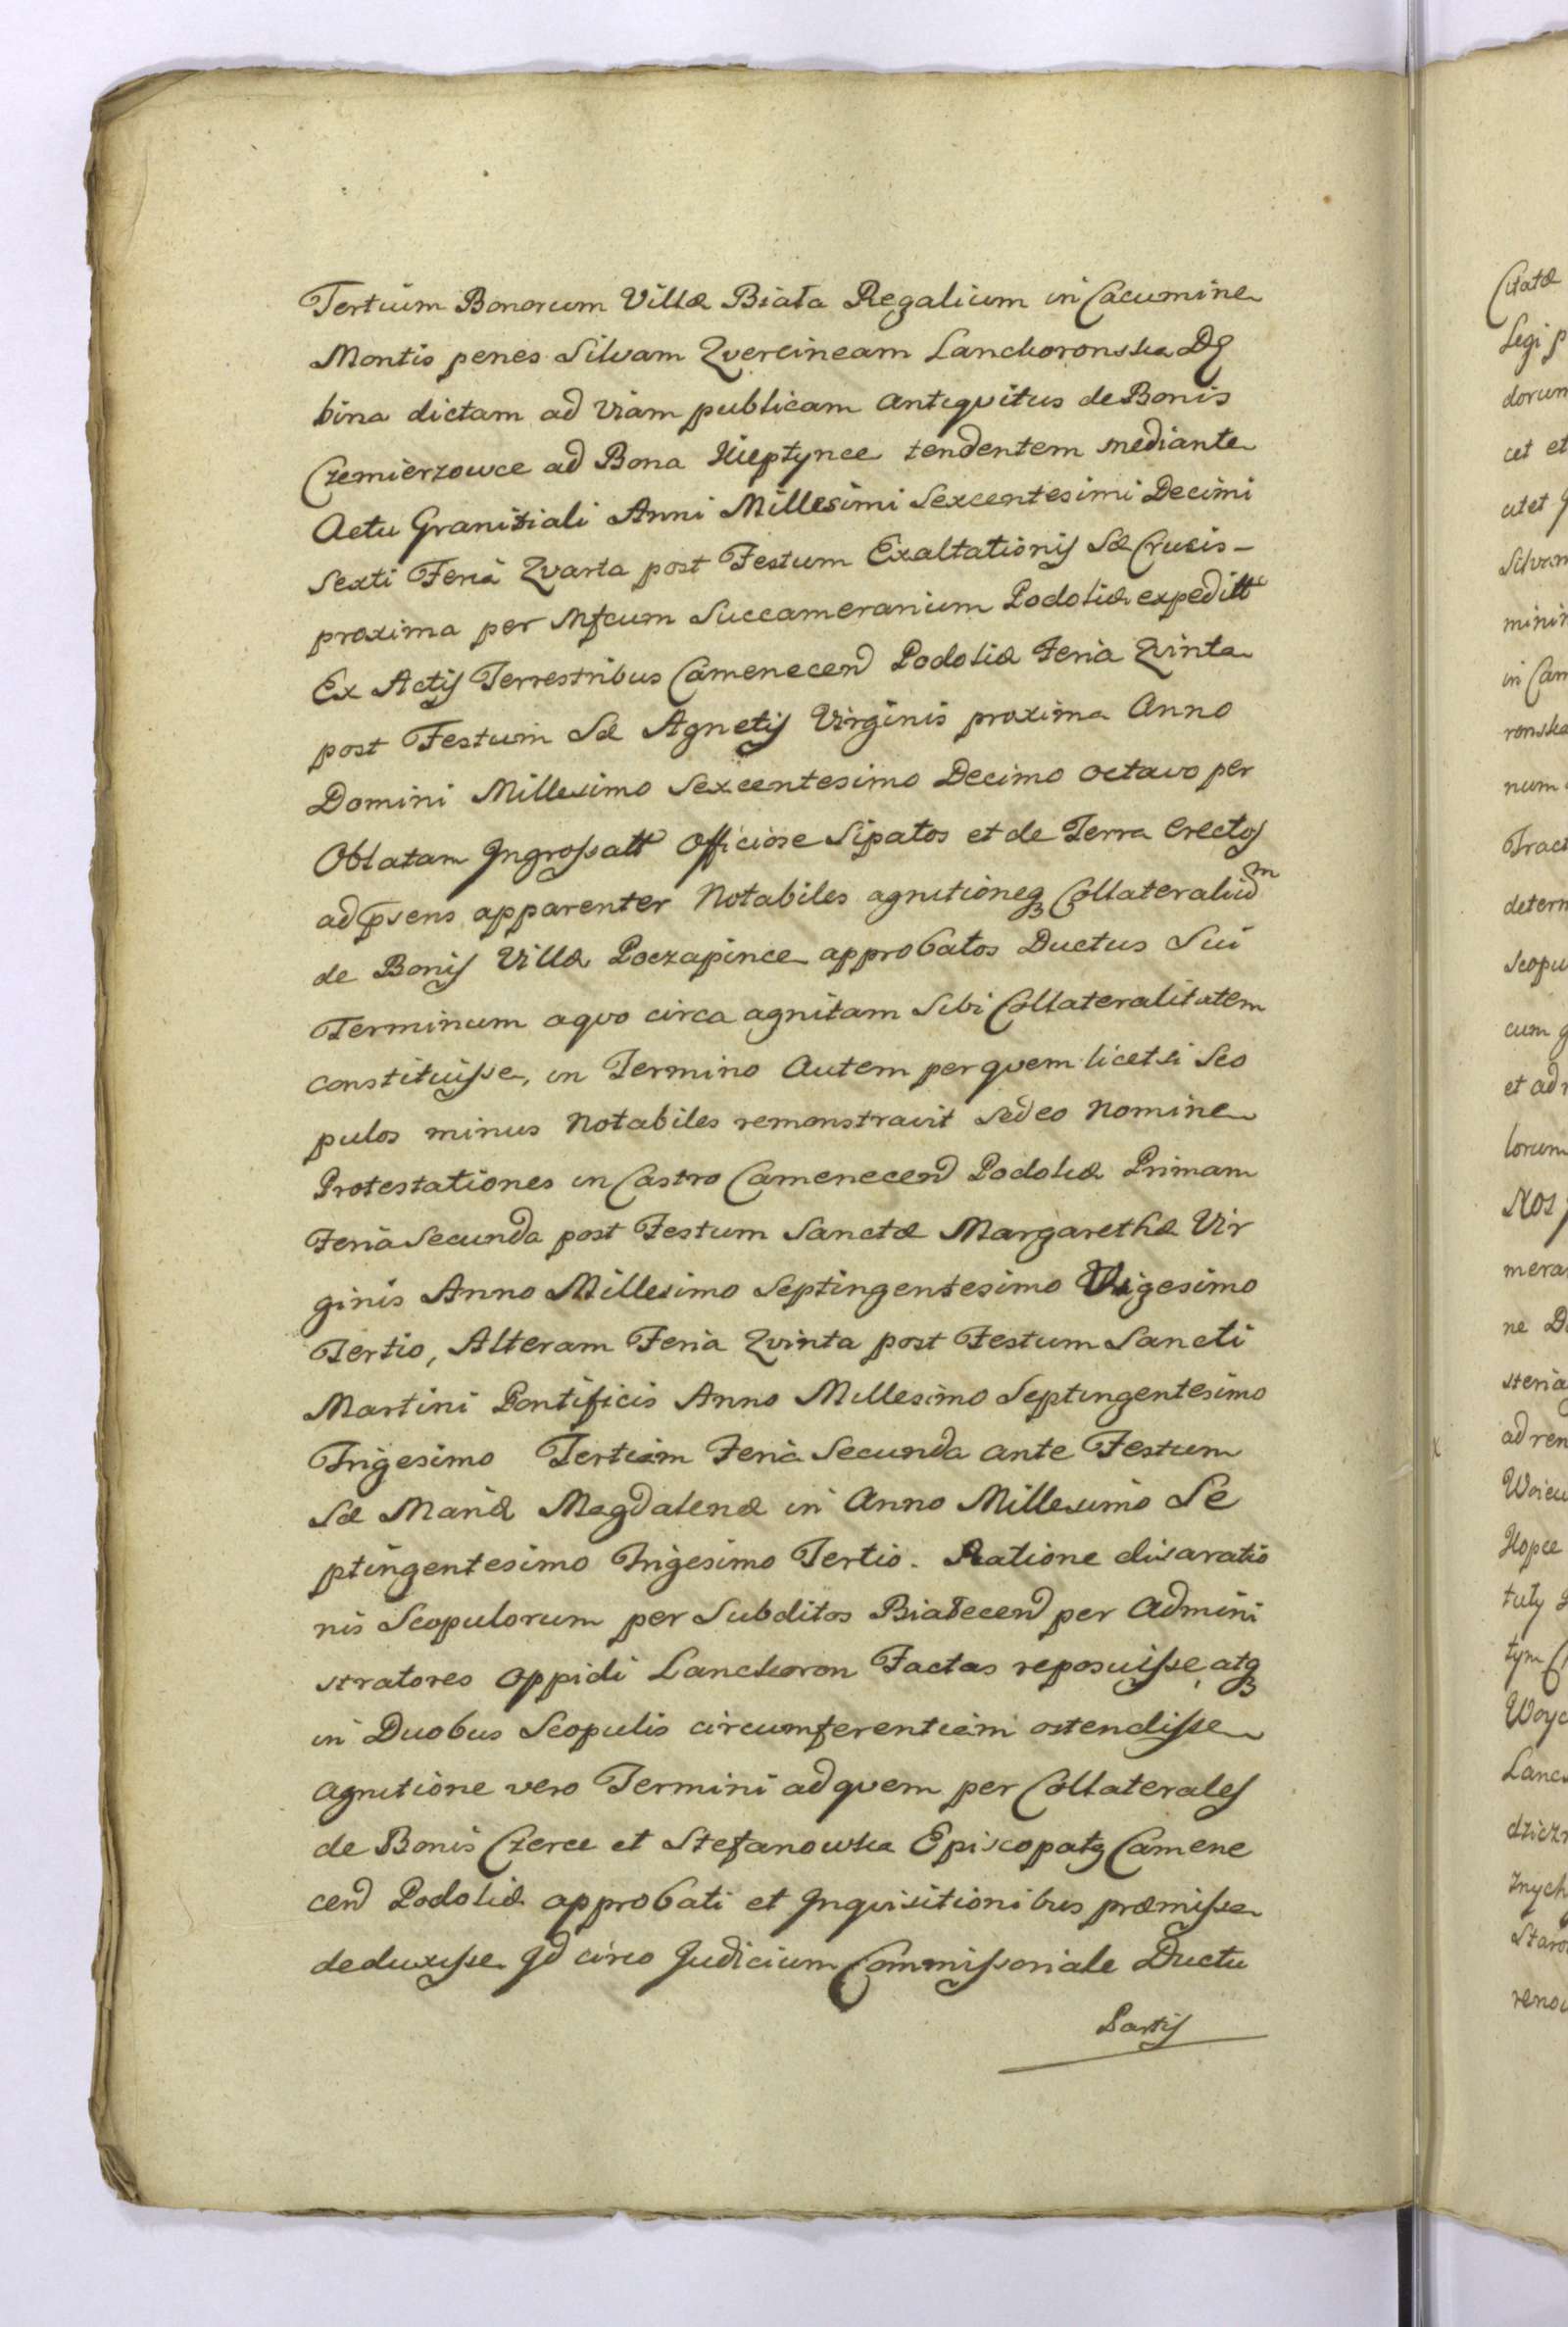 Tertium Bonorum Villæ Biała Regalium in Cacumine
Montis penes Silvam Qvercineam Lanckoronska Dę
bina dictam ad viam publicam antiqvitus de Bonis
Czemierzowce ad Bona Kieptynce tendentem mediante
Actu Granitiali Anni Millesimi Sexcentesimi Decimi
Sexti Feria Qvarta post Festum Exaltationis Sæ Crucis-
proxima per Mfcum Succamerarium Podoliæ expeditt
Ex Actis Terrestribus Camenecen Podoliæ Feria Qvinta
post Festum Sæ Agnetis Virginis proxima Anno
Domini Millesimo Sexcentesimo Decimo octavo per
Oblatam Ingrossatt Officiose Sipatos et de Terra erectos
ad psens apparenter Notabiles agnitioneq Collateraliu
de Bonis Villæ Poczapince approbatos Ductus Sui
Terminum a qvo circa agnitam Sibi Collateralitatem
constituisse, in Termino Autem per qvem licet si Sco
pulos minus Notabiles remonstravit Sed eo Nomine
Protestationes in Castro Camenecen Podoliæ Primam
Feria Secunda post Festum Sanctæ Margarethæ Vir
ginis Anno Millesimo Septingentesimo
Tertio, Alteram Feria Qvinta post Festum Sancti
Martini Pontificis Anno Millesimo Septingentesimo
Trigesimo Tertiam Feria Secunda ante Festum
Sæ Mariæ Magdalenæ in Anno Millesimo Se
ptingentesimo Trigesimo Tertio. Ratione disaratio
nis Scopulorum per Subditos Białecen per Admini
stratores Oppidi Lanckoron Factas reposuisse, atq
in Duobus Scopulis circumferentiam ostendisse
Agnitione vero Termini ad qvem per Collaterales
de Bonis Czerce et Stefanowka Episcopatq Camene
cen Podoliæ approbati et Inqvisitionibus præmissa
deduxisse Id circo Judicium Commissoriale Ductu
Partis
Citatæ
Legi p
dorum
cet et
utet
Silvam
minim
in Cam
ronska
num
Tract
determ
Scopu
cum
et ad
lorum
Nos
mera
ne D
steria
ad ren
Woiew
Kopce
tuly
tym
Woyc
Lanc
dzicz
znych
Staro
reno